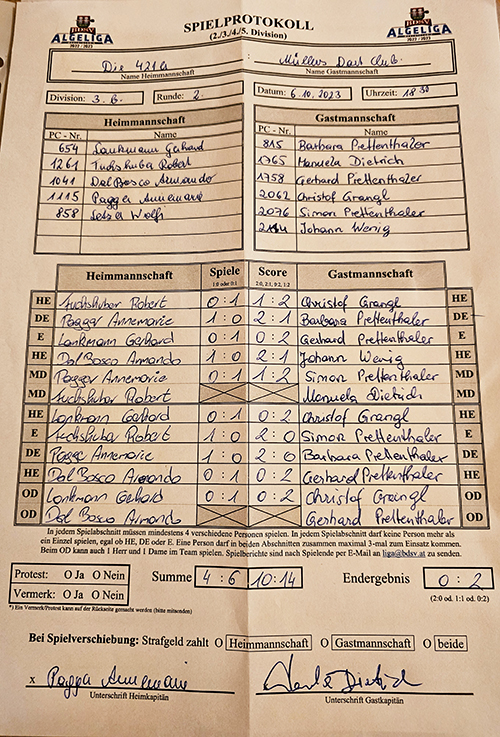 BDSV
ALGELIGA
2022 / 2023
SPIELPROTOKOLL
(2./3./4./5. Division)
BDSV
ALGELIGA
2022 / 2023
Die 421a : Müllers Dart Club
Name Heimmannschaft Name Gastmannschaft
Division: 3. B. Runde: 2. Datum: 6.10.2023 Uhrzeit: 18 30
Heimmannschaft Gastmannschaft
PC - Nr. Name PC - Nr. Name
654 Lonkmann Gerhard 815 Barbara Prettenthaler
1261 Fuchshuber Robert 1365 Manuela Dietrich
1041 Dal Bosco Armando 1758 Gerhard Prettenthaler
1115 Pagger Annemarie 2062 Christof Grangl
858 Wolfi 2076 Simon Prettenthaler
2144 Johann Wenig
Heimmannschaft Spiele Score Gastmannschaft
1:0 oder 0:1 2:0, 2:1, 0:2, 1:2
HE Fuchshuber Robert 0 : 1 1 : 2 Christof Grangl HE
DE Pagger Annemarie 1 : 0 2 : 1 Barbara Prettenthaler DE
E Lonkmann Gerhard 0 : 1 0 : 2 Gerhard Prettenthaler E
HE Dal Bosco Armando 1 : 0 2 : 1 Johann Wenig HE
MD Pagger Annemarie 0 : 1 1 : 2 Simon Prettenthaler MD
MD Fuchshuber Robert Manuela Dietrich MD
HE Lonkmann Gerhard 0 : 1 0 : 2 Christof Grangl HE
E Fuchshuber Robert 1 : 0 2 : 0 Simon Prettenthaler E
DE Pagger Annemarie 1 : 0 2 : 0 Barbara Prettenthaler DE
HE Dal Bosco Armando 0 : 1 0 : 2 Gerhard Prettenthaler HE
OD Lonkmann Gerhard 0 : 1 0 : 2 Christof Grangl OD
OD Dal Bosco Armando Gerhard Prettenthaler OD
In jedem Spielabschnitt müssen mindestens 4 verschiedene Personen spielen. In jedem Spielabschnitt darf keine Person mehr als
ein Einzel spielen, egal ob HE, DE oder E. Eine Person darf in beiden Abschnitten zusammen maximal 3-mal zum Einsatz kommen.
Beim OD kann auch 1 Herr und 1 Dame im Team spielen. Spielberichte sind nach Spielende per E-Mail an liga@bdsv.at zu senden.
Protest: O Ja O Nein Summe 4 : 6 10:14 Endergebnis 0 : 2
Vermerk: O Ja O Nein (2:0 od. 1:1 od. 0:2)
*) Ein Vermerk/Protest kann auf der Rückseite gemacht werden (bitte mitsenden)
Bei Spielverschiebung: Strafgeld zahlt O Heimmannschaft O Gastmannschaft O beide
x Pagger Annemarie Dietrich
Unterschrift Heimkapitän Unterschrift Gastkapitän